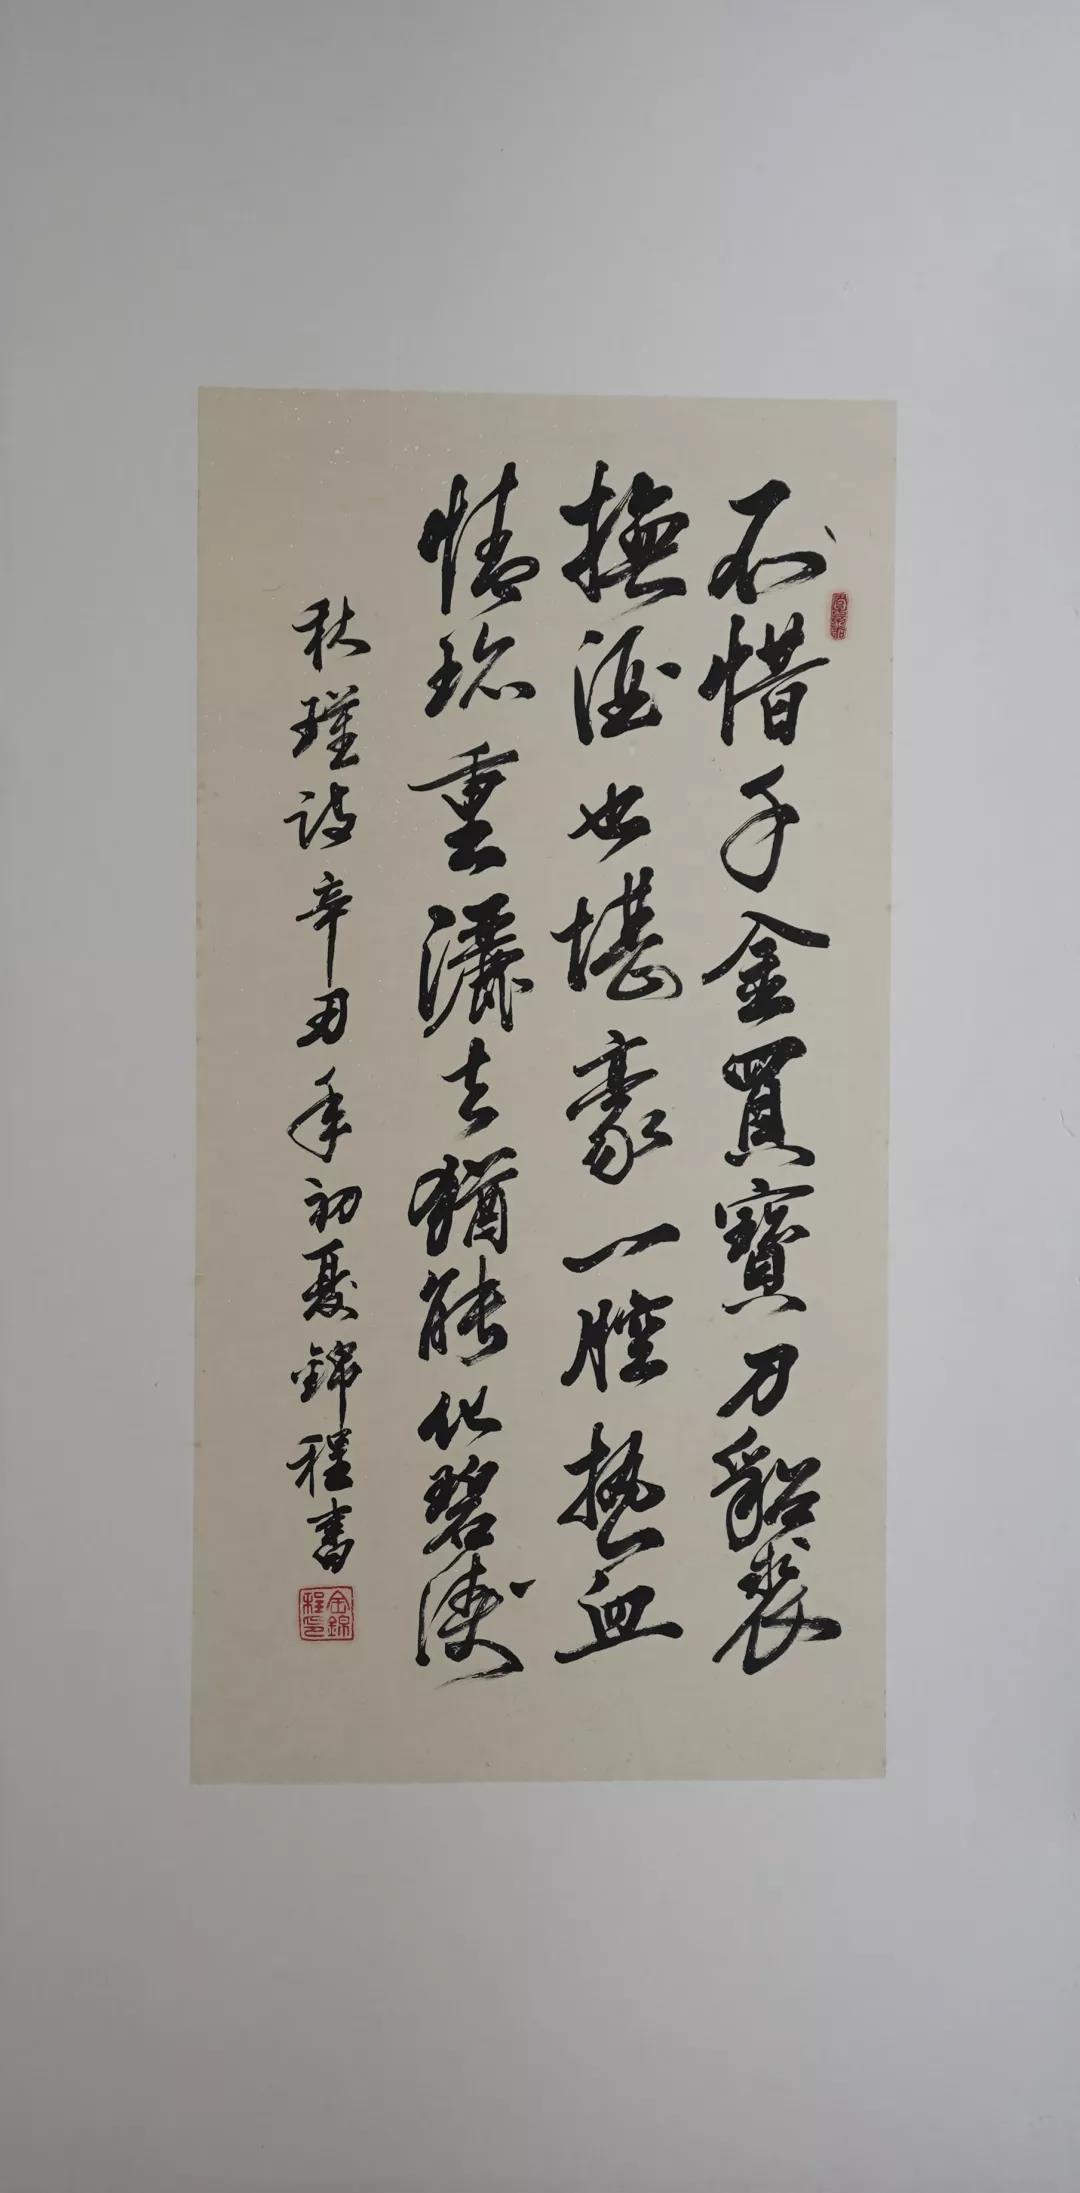 不惜千金買寶刀貂裘
撫酒也堪豪一腔熱血
情珎重灑去猶能化碧濤
秋瑾詩辛丑年初夏錦程書
金錦程印